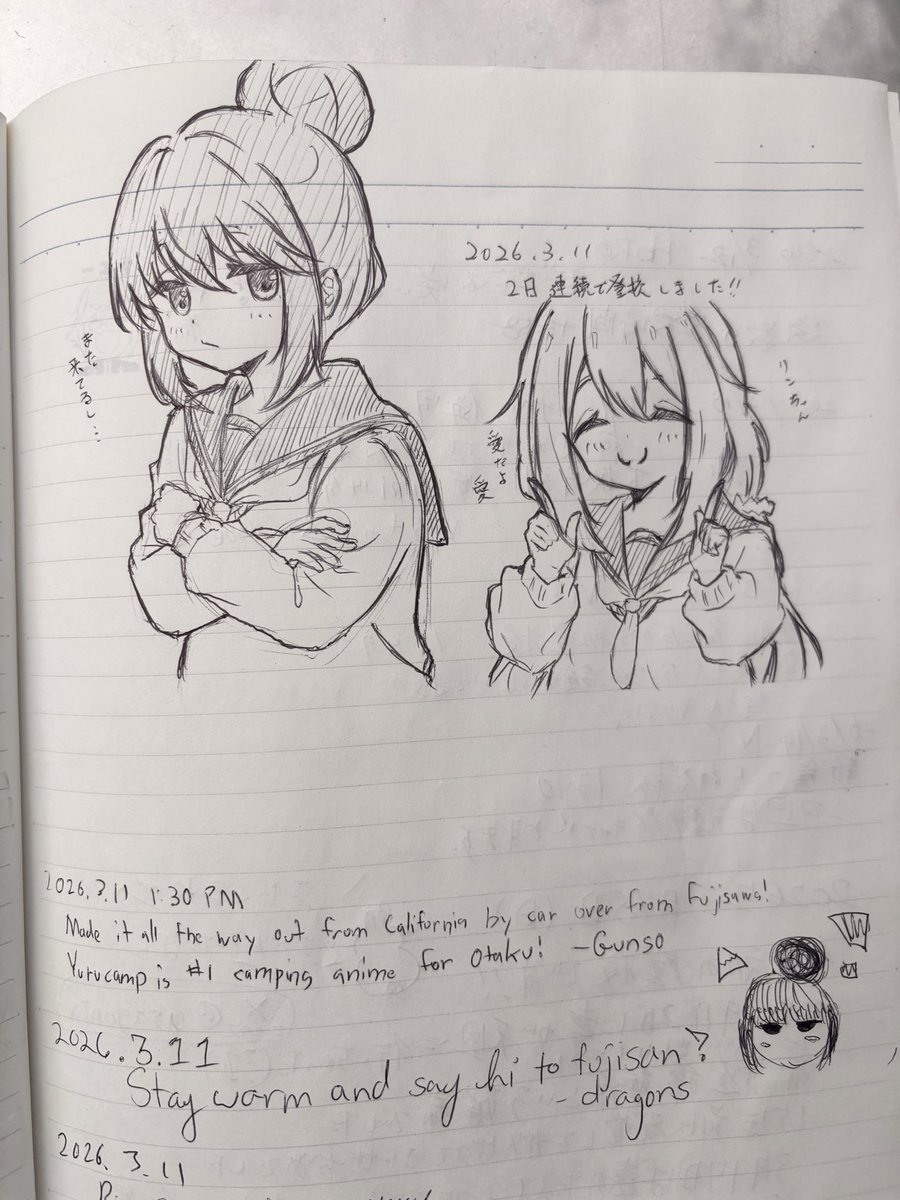 2026.3.11
2日連続で登校しました!!
また
来てるし…
リンちゃん
愛だよ
愛
2026.3.11 1:30 PM
Made it all the way out from California by car over from Fujisawa!
Yurucamp is #1 camping anime for Otaku! -Gunso
2026.3.11
Stay warm and say hi to fujisan?
- dragons
2026.3.11